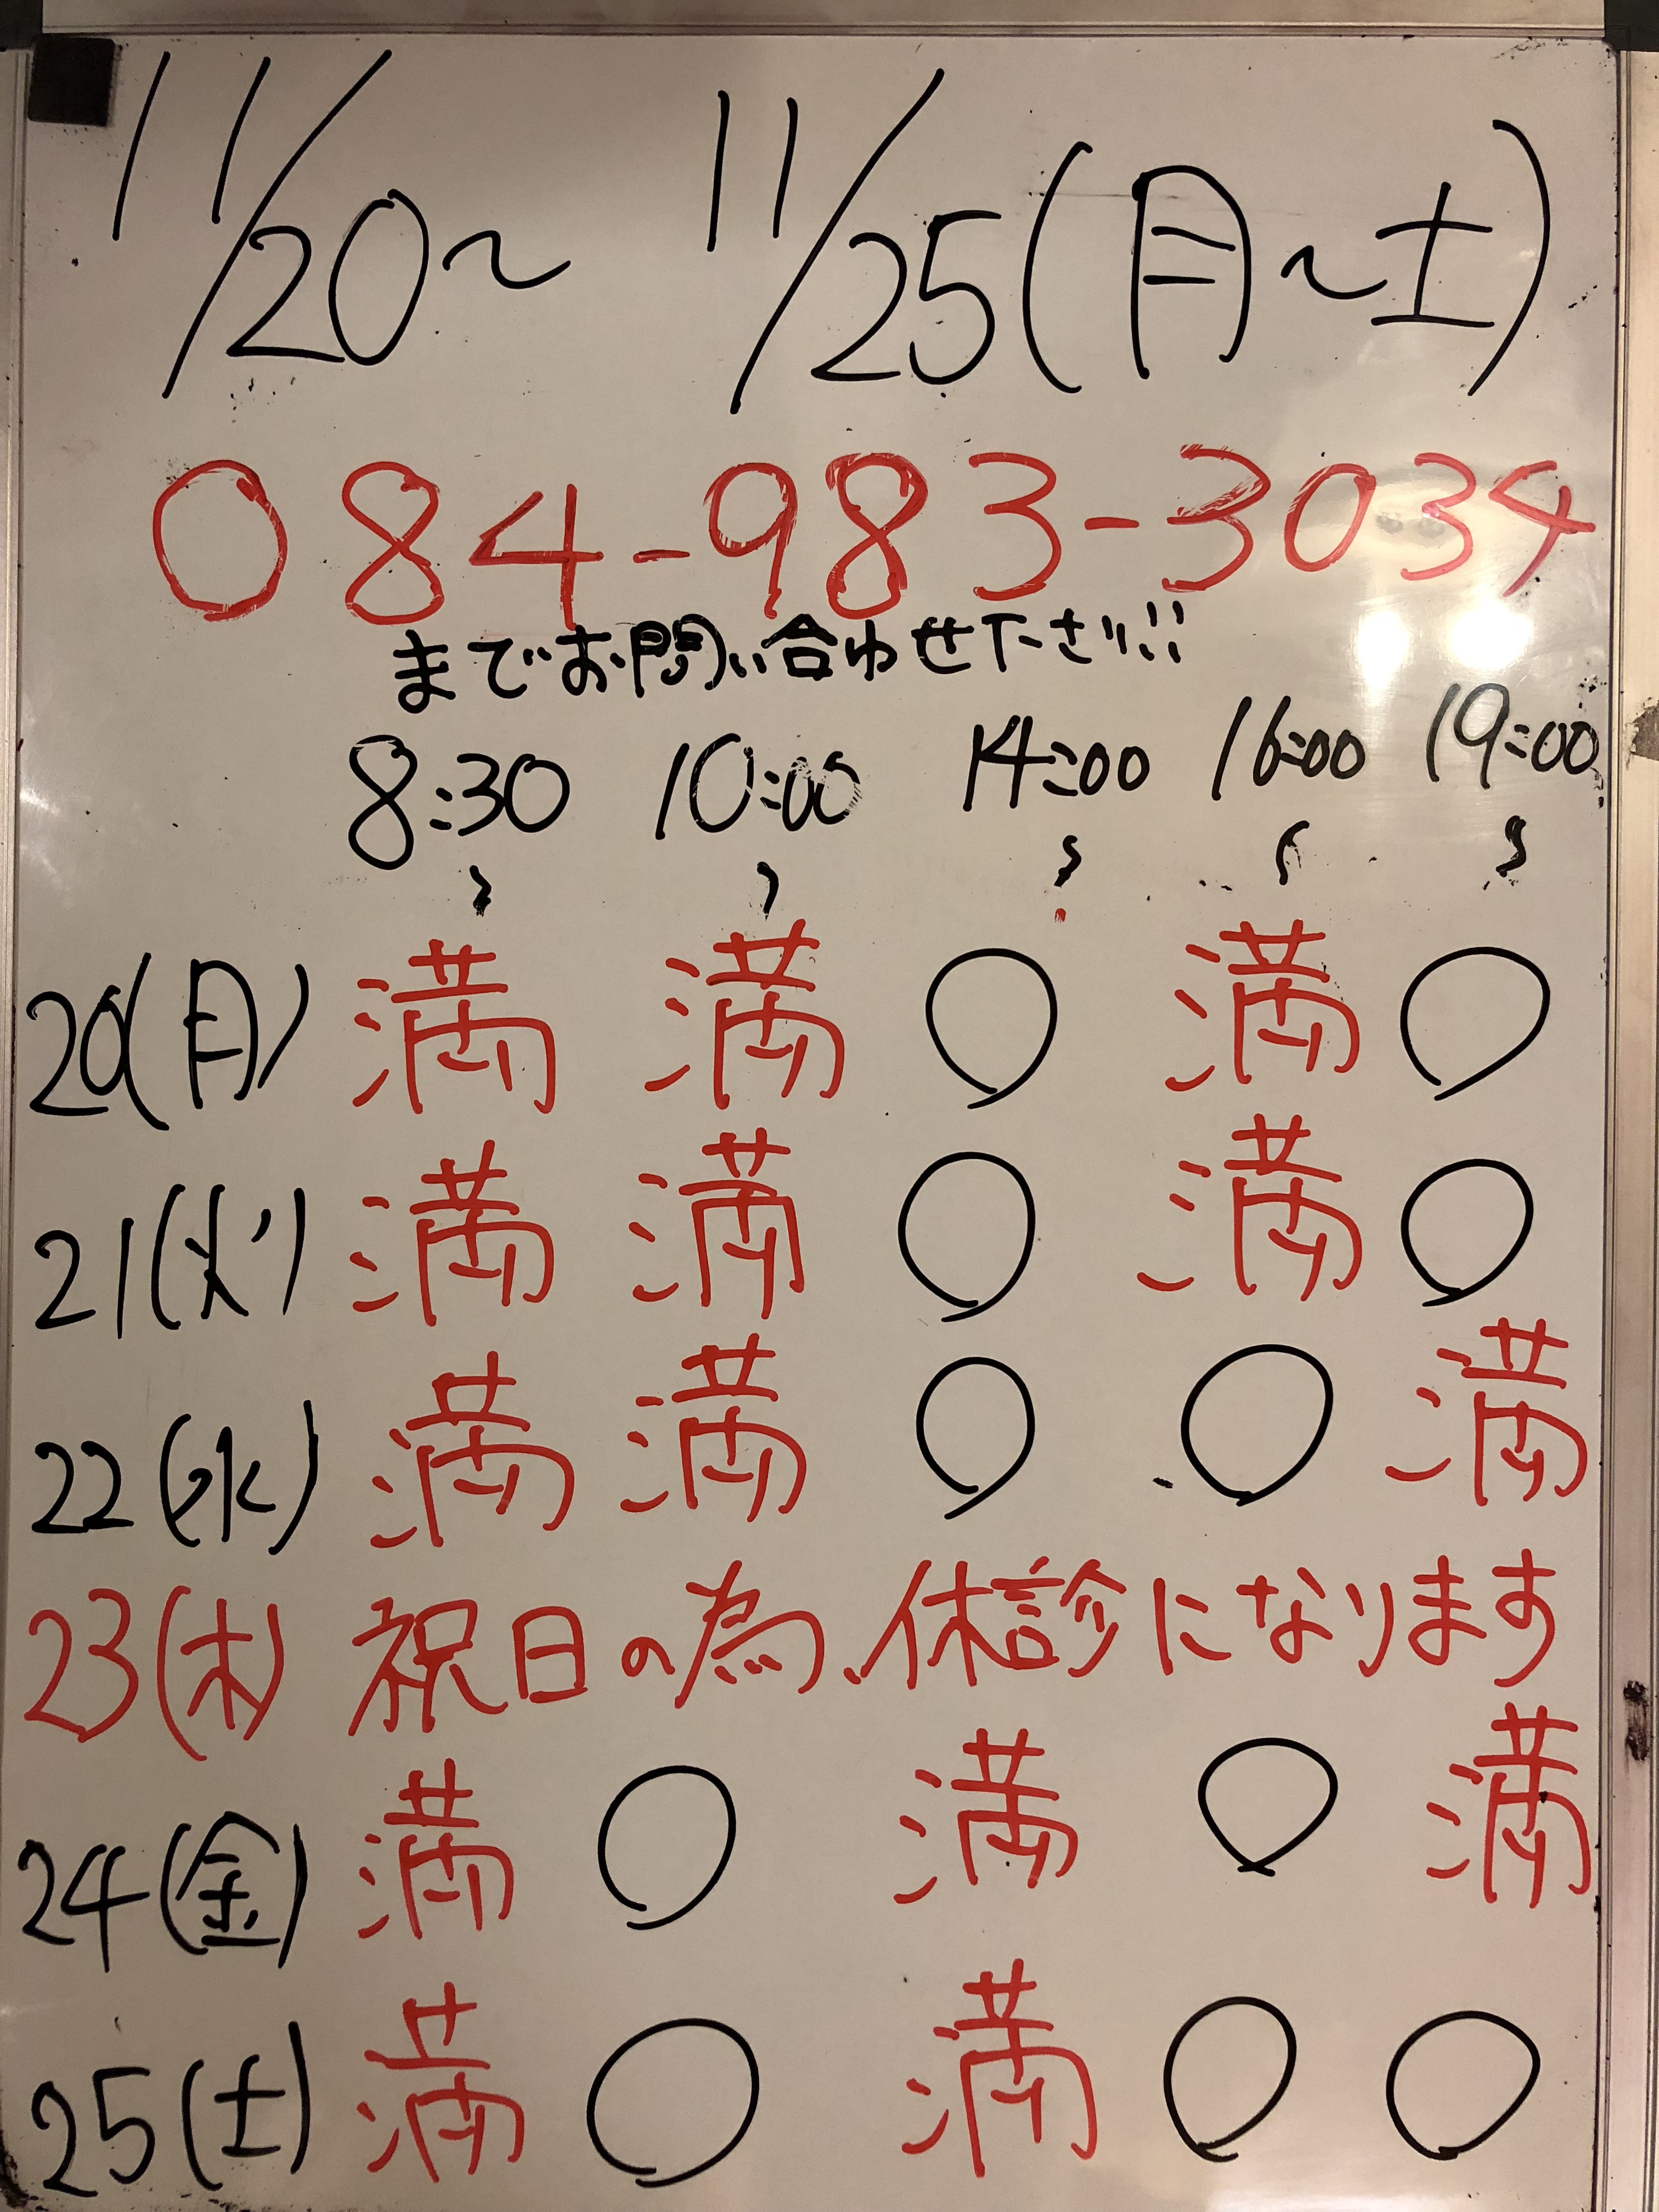 11/20〜 11/25(月〜土)
084-983-3034
までお問い合わせ下さい!!
8:30〜 10:00〜 14:00〜 16:00〜 19:00〜
20(月) 満 満 ○ 満 ○
21(火) 満 満 ○ 満 ○
22(水) 満 満 ○ ○ 満
23(木) 祝日の為、休診になります
24(金) 満 ○ 満 ○ 満
25(土) 満 ○ 満 ○ ○